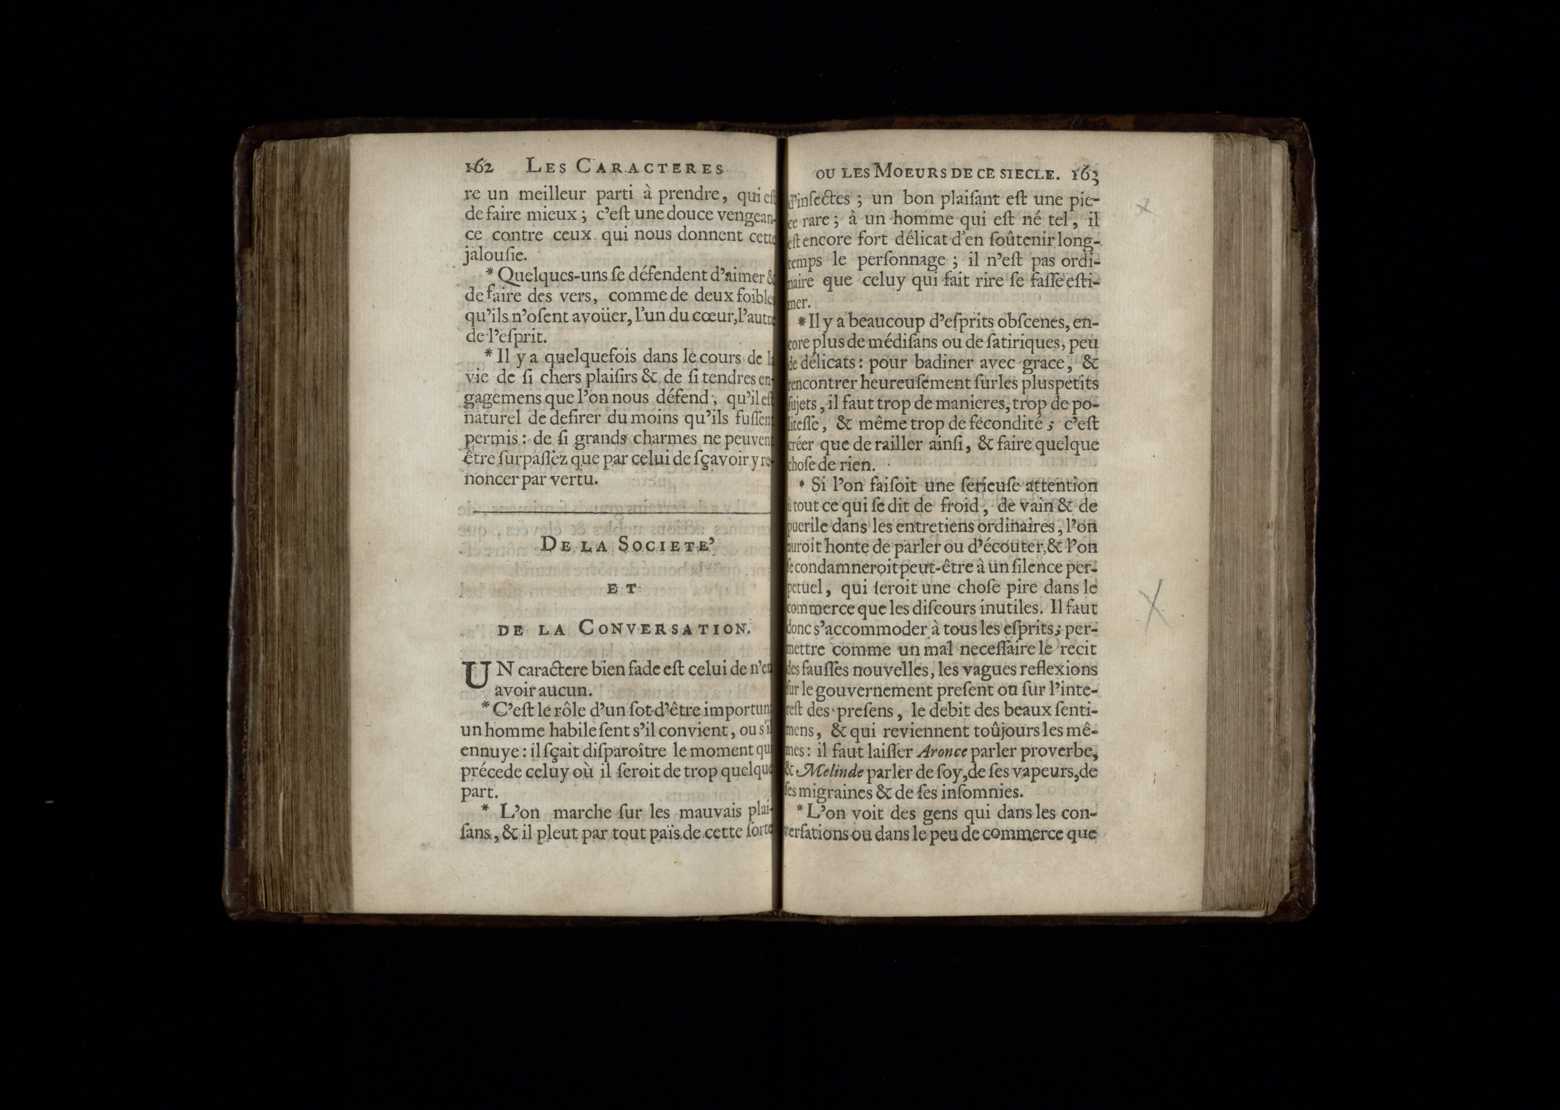 162 LES CARACTERES
re un meilleur parti à prendre, qui est
de faire mieux; c'est une douce vengean-
ce contre ceux qui nous donnent cette
jalousie.
* Quelques-uns se défendent d'aimer &
de faire des vers, comme de deux foibles
qu'ils n'osent avoüer, l'un du cœur, l'autre
de l'esprit.
* Il y a quelquefois dans le cours de la
vie de si chers plaisirs & de si tendres en-
gagemens que l'on nous défend, qu'il est
naturel de desirer du moins qu'ils fussent
permis: de si grands charmes ne peuvent
être surpassez que par celui de sçavoir y re-
noncer par vertu.
DE LA SOCIETE'
ET
DE LA CONVERSATION.
UN caractere bien fade est celui de n'en
avoir aucun.
* C'est le rôle d'un sot d'être importun:
un homme habile sent s'il convient, ou s'il
ennuye: il sçait disparoître le moment qui
précede celuy où il seroit de trop quelque
part.
* L'on marche sur les mauvais plai-
sans, & il pleut par tout païs de cette sorte
OU LES MOEURS DE CE SIECLE. 163
d'insectes; un bon plaisant est une pie-
ce rare; à un homme qui est né tel, il
est encore fort délicat d'en soûtenir long-
temps le personnage; il n'est pas ordi-
naire que celuy qui fait rire se fasse esti-
mer.
* Il y a beaucoup d'esprits obscenes, en-
core plus de médisans ou de satiriques, peu
de délicats: pour badiner avec grace, &
rencontrer heureusement sur les plus petits
sujets, il faut trop de manieres, trop de po-
litesse, & même trop de fécondité; c'est
créer que de railler ainsi, & faire quelque
chose de rien.
* Si l'on faisoit une serieuse attention
à tout ce qui se dit de froid, de vain & de
puerile dans les entretiens ordinaires, l'on
auroit honte de parler ou d'écouter, & l'on
se condamneroit peut-être à un silence per-
petuel, qui seroit une chose pire dans le
commerce que les discours inutiles. Il faut
donc s'accommoder à tous les esprits; per-
mettre comme un mal necessaire le recit
des fausses nouvelles, les vagues reflexions
sur le gouvernement present ou sur l'inte-
rest des presens, le debit des beaux senti-
mens, & qui reviennent toûjours les mê-
mes: il faut laisser Aronce parler proverbe,
& Melinde parler de soy, de ses vapeurs, de
ses migraines & de ses insomnies.
* L'on voit des gens qui dans les con-
versations ou dans le peu de commerce que